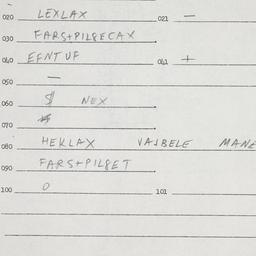 020 LEXLAX 021 —
030 FARS+PILSECAX
040 EFNTUF 041 +
050 —
060 $ NEX
070 $
080 HEKLAX VAJBELE MANE
090 FARS+PILSET
100 0 101